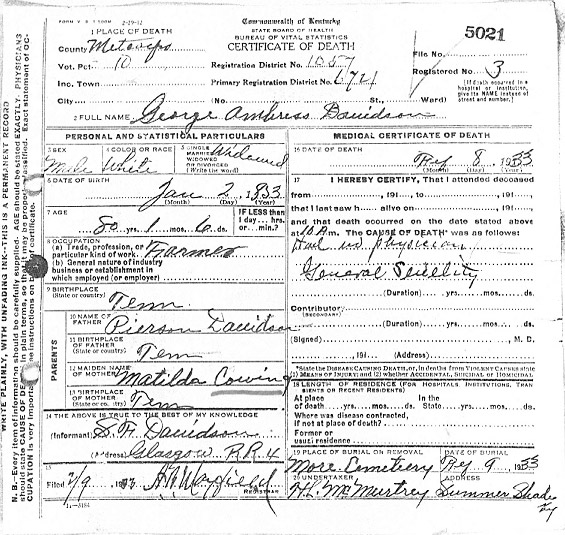 2-19-12
Commonwealth of Kentucky
STATE BOARD OF HEALTH
BUREAU OF VITAL STATISTICS
CERTIFICATE OF DEATH
5021
1 PLACE OF DEATH
County Metcalfe
Vot. Pct. 10
Inc. Town
City
Registration District No. 1057
Primary Registration District No. 6721
(No. St., Ward)
File No.
Registered No. 3
(If death occurred in a hospital or institution, give its NAME instead of street and number.)
2 FULL NAME George Ambress Davidson
PERSONAL AND STATISTICAL PARTICULARS
3 SEX Male
4 COLOR OR RACE White
5 SINGLE MARRIED WIDOWED OR DIVORCED (Write the word) Widowed
6 DATE OF BIRTH
Jan 2, 1833
(Month) (Day) (Year)
7 AGE
80 yrs. 1 mos. 6 ds.
IF LESS than 1 day... hrs. or... min.?
8 OCCUPATION
(a) Trade, profession, or particular kind of work Farmer
(b) General nature of industry business or establishment in which employed (or employer)
9 BIRTHPLACE
(State or country) Tenn
PARENTS
10 NAME OF FATHER Pierson Davidson
11 BIRTHPLACE OF FATHER
(State or country) Tenn
12 MAIDEN NAME OF MOTHER Matilda
13 BIRTHPLACE OF MOTHER
(State or co. try) Tenn
14 THE ABOVE IS TRUE TO THE BEST OF MY KNOWLEDGE
(Informant) Davidson
(Address) Glasgow R.R. 4
15
Filed 2/9, 19 Mayfield
REGISTRAR
11-3184
MEDICAL CERTIFICATE OF DEATH
16 DATE OF DEATH
8
(Month) (Day) (Year)
17 I HEREBY CERTIFY, That I attended deceased
from, 191, to, 191,
that I last saw h alive on, 191,
and that death occurred on the date stated above
at M. The CAUSE OF DEATH* was as follows:
Had no physician
General Senility
(Duration) yrs. mos. ds.
Contributory
(SECONDARY)
(Duration) yrs. mos. ds.
(Signed), M. D.
, 191 (Address)
*State the DISEASE CAUSING DEATH, or, in deaths from VIOLENT CAUSES state (1) MEANS OF INJURY; and (2) whether ACCIDENTAL, SUICIDAL or HOMICIDAL.
18 LENGTH OF RESIDENCE (FOR HOSPITALS, INSTITUTIONS, TRANSIENTS OR RECENT RESIDENTS)
At place of death yrs. mos. ds. In the State yrs. mos. ds.
Where was disease contracted, if not at place of death?
Former or usual residence
19 PLACE OF BURIAL OR REMOVAL
More Cemetery
DATE OF BURIAL
9
20 UNDERTAKER
H.L. McMurtrey
ADDRESS
Summer Shade
Ky
WRITE PLAINLY, WITH UNFADING INK—THIS IS A PERMANENT RECORD
N. B.—Every item of information should be carefully supplied. AGE should be stated EXACTLY. PHYSICIANS
should state CAUSE OF DEATH in plain terms, so that it may be properly classified. Exact statement of OC-
CUPATION is very important. See instructions on back of certificate.